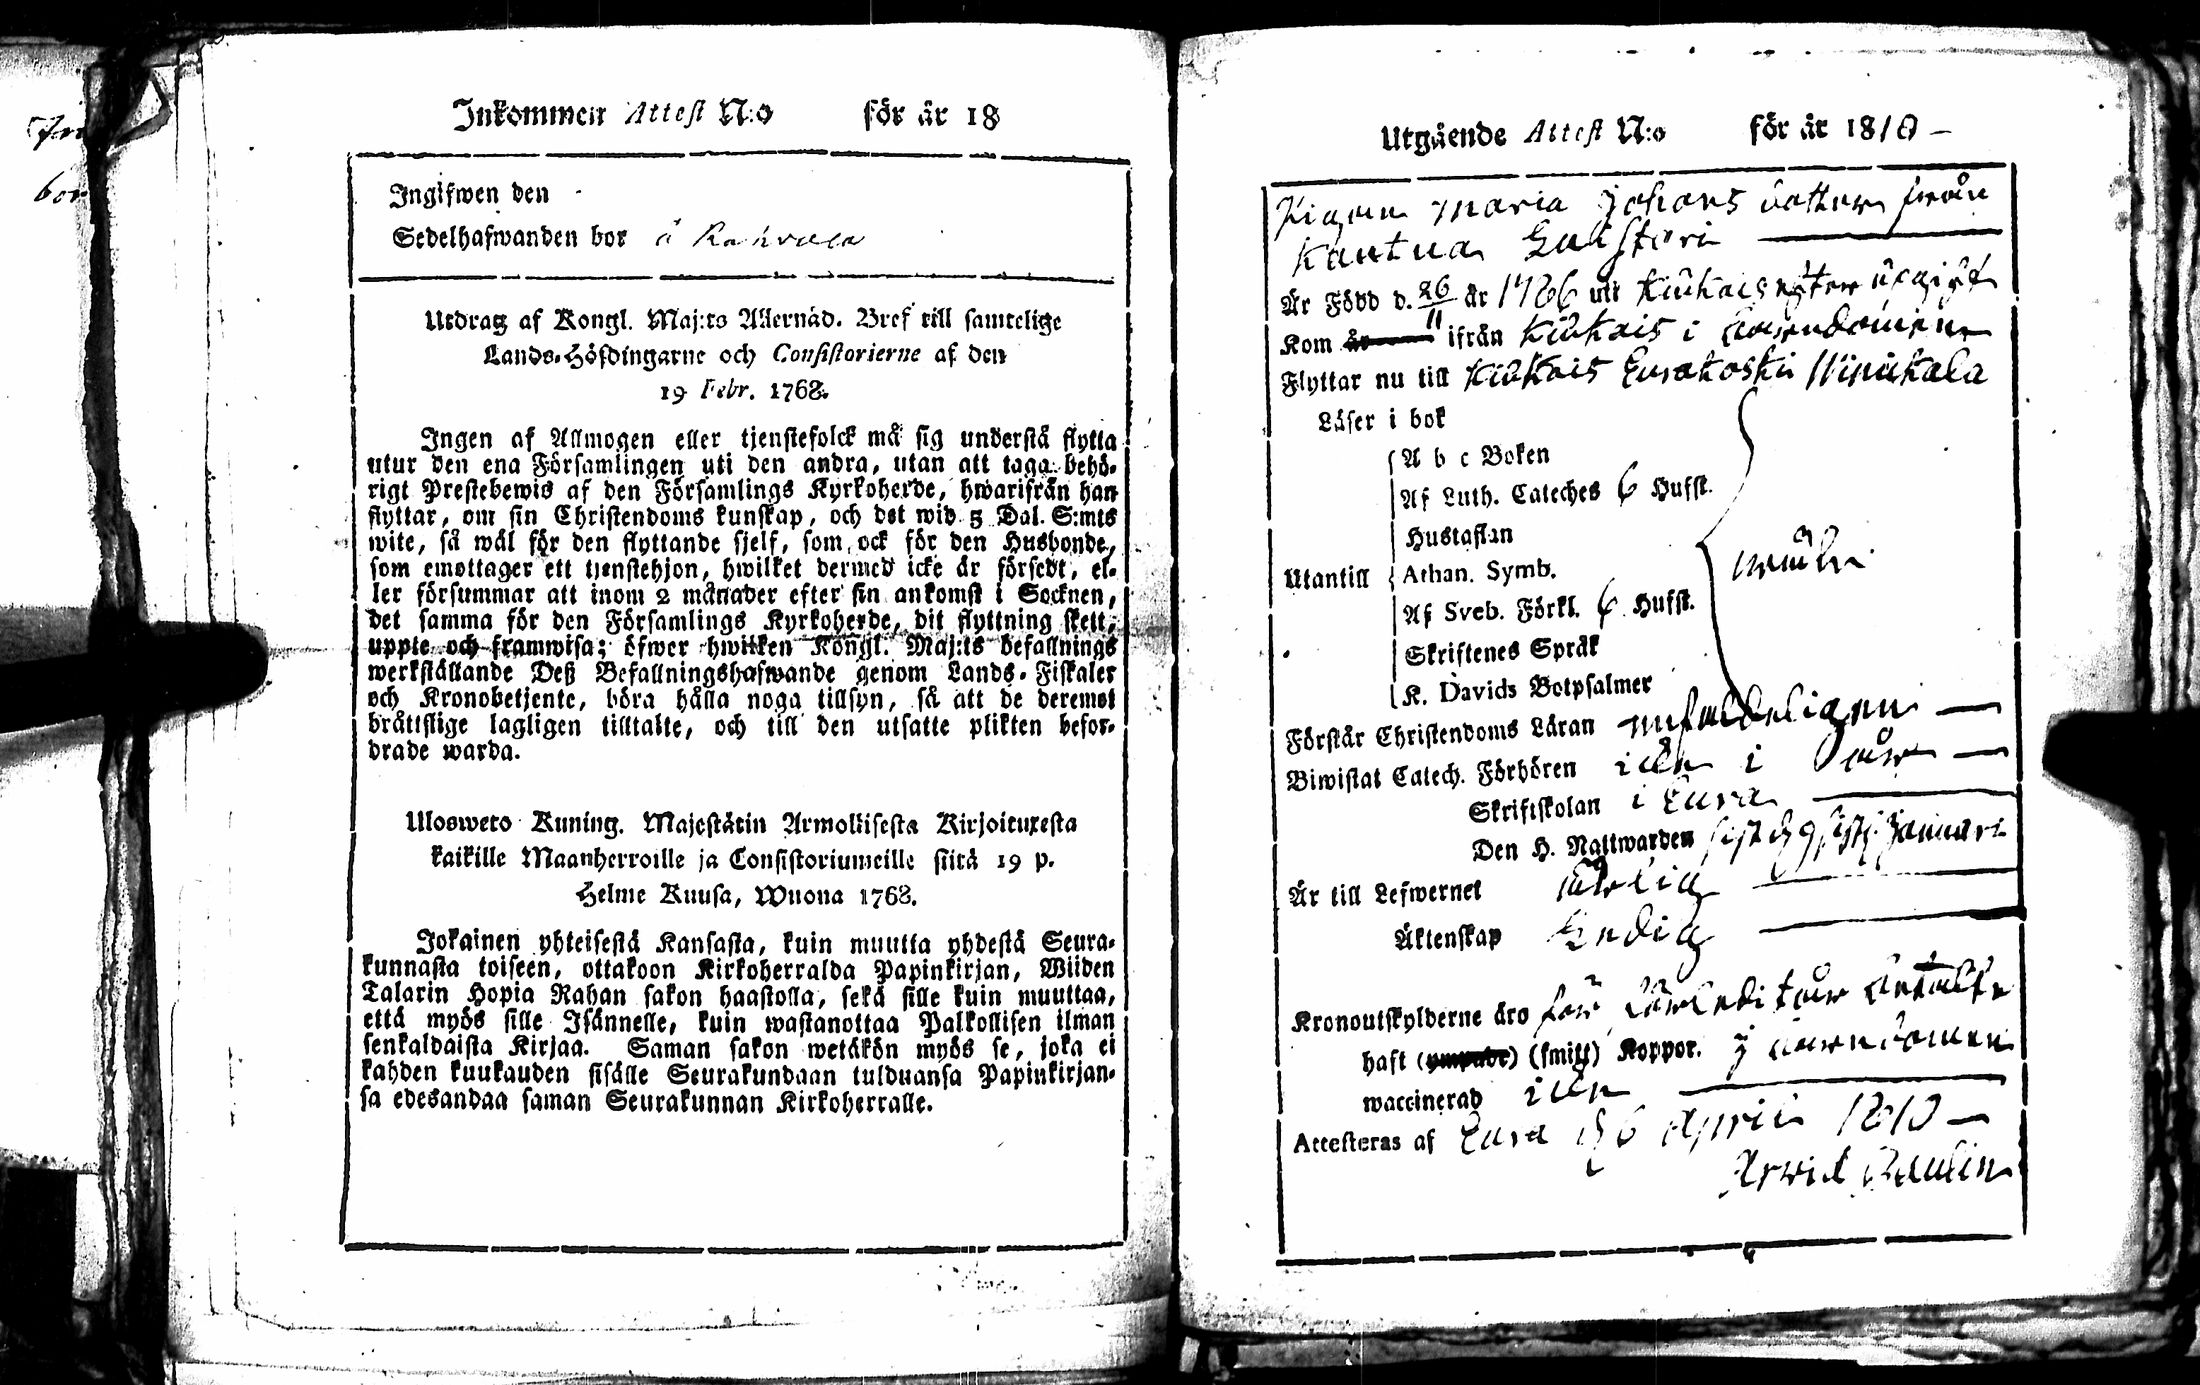 Inkommen Attest N:o för år 18
Ingifwen den
Sedelhafwanden bor å
Utdrag af Kongl. Maj:ts Allernåd. Bref till samtelige
Lands-Höfdingarne och Consistorierne af den
19 Febr. 1768.
Ingen af Allmogen eller tjenstefolck må sig understå flytta
utur den ena Församlingen uti den andra, utan att taga behö-
rigt Prestebewis af den Församlings Kyrkoherde, hwarifrån han
flyttar, om sin Christendoms kunskap, och det wid 5 Dal. S:mts
wite, så wäl för den flyttande sjelf, som ock för den Husbonde,
som emottager ett tjenstehjon, hwilket dermed icke är försedt, el-
ler försummar att inom 2 månader efter sin ankomst i Socknen,
det samma för den Församlings Kyrkoherde, dit flyttning skett,
uppte och framwisa; öfwer hwilken Kongl. Maj:ts befallnings
werkställande Deß Befallningshafwande genom Lands-Fiskaler
och Kronobetjente, böra hålla noga tillsyn, så att de deremot
bråttslige lagligen tilltalte, och till den utsatte plikten befor-
drade warda.
Ulosweto Kuning. Majestätin Armollisesta Kirjoituxesta
kaikille Maanherroille ja Consistoriumeille siitä 19 p.
Helme Kuusa, Wuona 1768.
Jokainen yhteisestä Kansasta, kuin muutta yhdestä Seura-
kunnasta toiseen, ottakoon Kirkoherralda Papinkirjan, Wiiden
Talarin Hopia Rahan sakon haastolla, sekä sille kuin muuttaa,
että myös sille Isännelle, kuin wastanottaa Palkollisen ilman
senkaldaista Kirjaa. Saman sakon wetäkön myös se, joka ei
kahden kuukauden sisälle Seurakundaan tulduansa Papinkirjan-
sa edesandaa saman Seurakunnan Kirkoherralle.
Utgående Attest N:o för år 1810 –
Pigan Maria Johans dotter från
Kautua
Är Född d. 26/11 år 1786 uti Kiukais efter upgift
Kom år ifrån Kiukais i
Flyttar nu till Kiukais Eurakoski
Läser i bok
A b c Boken
Af Luth. Cateches 6 Hufst.
Hustaflan
Utantill Athan. Symb.
Af Sveb. Förkl. 6 Hufst.
Skriftenes Språk
K. Davids Botpsalmer
Förstår Christendoms Läran enfaldeligen –
Biwistat Catech. Förhören icke i år –
Skriftskolan i Eura
Den H. Nattwarden sist d 9 sistl. Januari
Är till Lefwernet ärlig
Äktenskap Ledig
Kronoutskylderne äro för
haft (ympade) (smitt) Koppor. i barndomen
waccinerad icke
Attesteras af Eura d 6 April 1810 –
Arwid Paulin